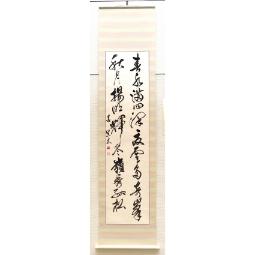 春水满四澤夏雲多奇峯
秋月揚明輝冬嶺秀孤松